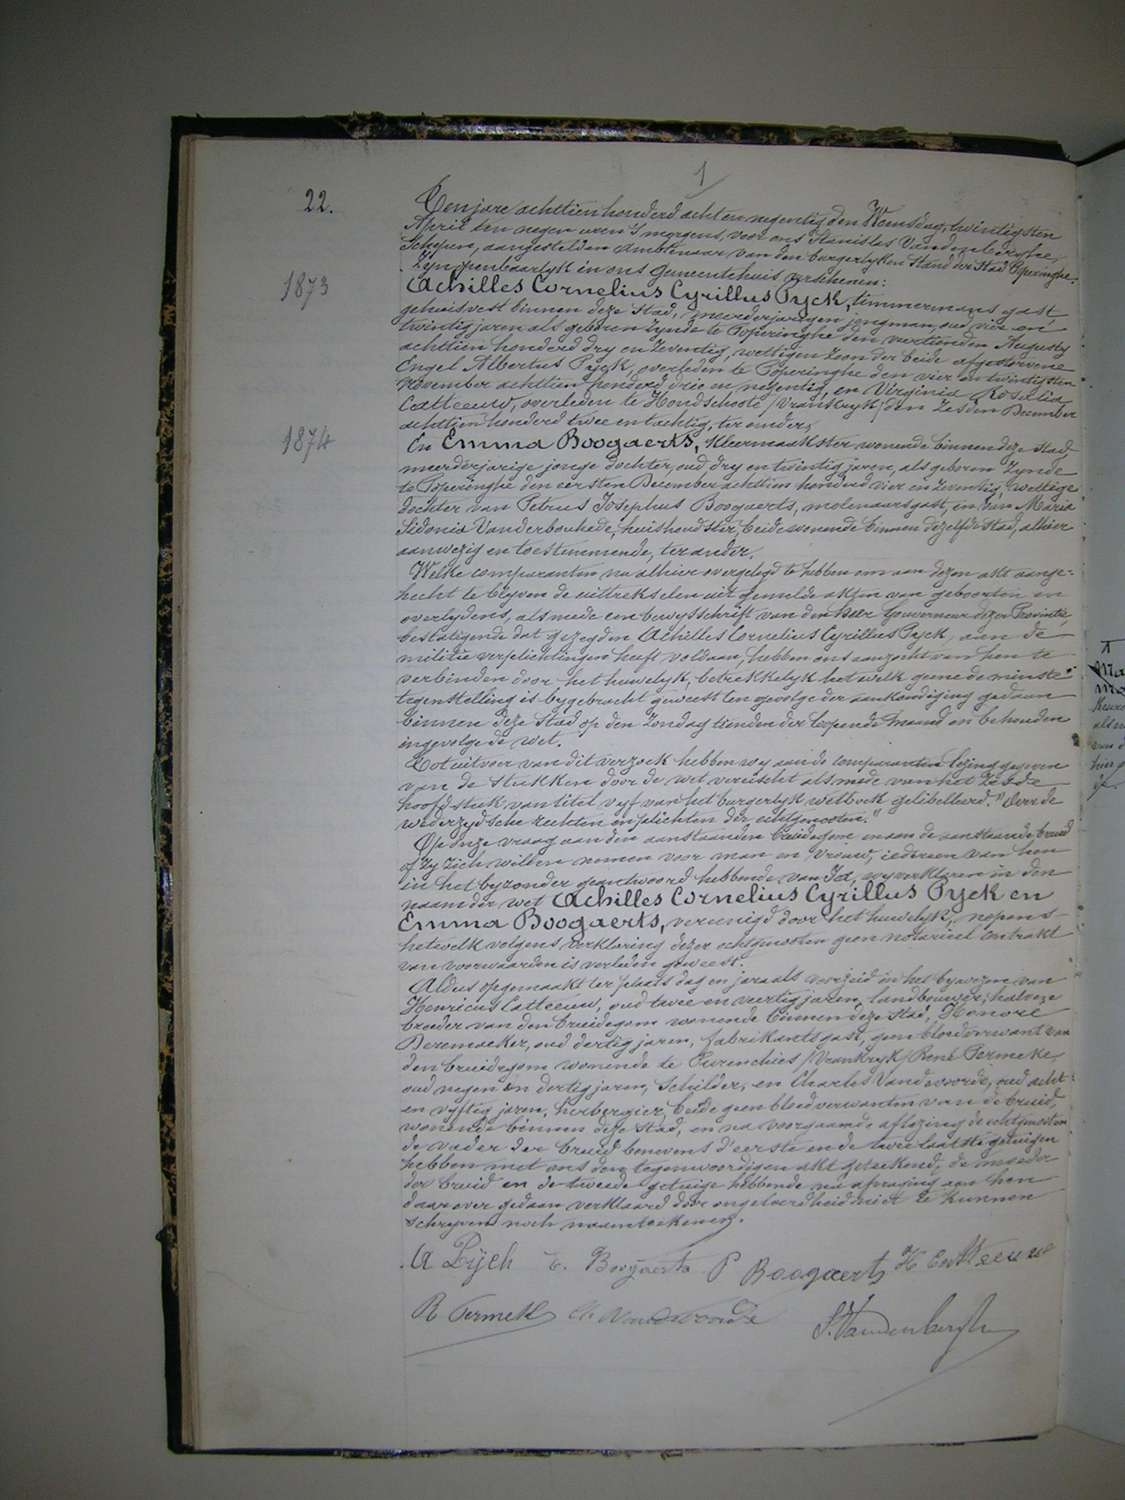 1
22.
Ten jare achttien honderd acht en negentig den Woensdag, twintigsten
April ten negen uren 's morgens, voor ons Stanislas Vandenberghe,
Schepen, aangestelden Ambtenaar van den burgerlyken Stand der Stad Poperinghe,
zyn openbaarlyk in ons Gemeentehuis verschenen:
1873
Achilles Cornelius Cyrillus Pyck, timmermans gast,
gehuisvest binnen deze stad, meerderjarigen jongman, oud vier en
twintig jaren als geboren zynde te Poperinghe den veertienden Augusty
achttien honderd dry en zeventig, wettigen zoon der beide afgestorvene
Engel Albertus Pyck, overleden te Poperinghe den vier en twintigsten
november achttien honderd drie en negentig, en Virginia Rosalia
Catteeuw, overleden te Hondschoote /Vrankryk/ den zesden December
achttien honderd twee en tachtig, ter eender;
1874
En Emma Boogaerts, Kleermaakster, wonende binnen deze stad,
meerderjarige jonge dochter, oud dry en twintig jaren, als geboren zynde
te Poperinghe den eersten December achttien honderd vier en zeventig, wettige
dochter van Petrus Josephus Boogaerts, molenaarsgast, en van Maria
Sidonia Vanderbouhede, huishoudster, beide wonende binnen dezelfde stad, alhier
aanwezig en toestemmende, ter ander.
Welke comparanten na alhier overgelegd te hebben om aan dezen akt aange=
hecht te blyven de uittrekselen uit gemelde akten van geboorten en
overlydens, alsmede een bewysschrift van den Heer Gouverneur dezer Provintie,
bestatigende dat gezegden Achilles Cornelius Cyrillus Pyck, aan de
militie verplichtingen heeft voldaan, hebben ons aanzocht van hen te
verbinden door het huwelyk, betrekkelyk het welk geene de minste
tegenstelling is bygebracht geweest ten gevolge der aankondiging gedaan
binnen deze Stad op den Zondag tienden der loopende maand en behouden
ingevolge de wet.
Tot uitvoer van dit verzoek hebben wy aan de comparanten lezing gegeven
van de stukken door de wet vereischt alsmede van het zesde
hoofdstuk van titel vyf van het burgerlyk wetboek gelibelleerd: "Over de
wederzydsche rechten en plichten der echtgenooten."
Op onze vraag aan den aanstaanden bruidegom en aan de aanstaande bruid
of zy zich willen nemen voor man en vrouw, iedereen van hen
in het byzonder geantwoord hebbende van Ja, wy verklaren in den
naam der wet Achilles Cornelius Cyrillus Pyck en
Emma Boogaerts, vereenigd door het huwelyk, nopens
hetwelk volgens verklaring dezer echtgenooten geen notarieel contrakt
van voorwaarden is verleden geweest.
Aldus opgemaakt ter plaats dag en jaar als voorzeid in het bywezen van
Henricus Catteeuw, oud twee en veertig jaren, landbouwer, halvoze
broeder van den bruidegom wonende binnen deze stad, Honoré
Deremaeker, oud dertig jaren, fabrikantsgast, geen bloedverwant van
den bruidegom wonende te Purenchies /Vrankryk/ René Permeke,
oud negen en dertig jaren, Schilder, en Charles Vandevoorde, oud acht=
en vyftig jaren, herbergier, beide geen bloedverwanten van de bruid,
wonende binnen deze stad, en na voorgaande aflezing de echtgenooten
de vader der bruid benevens d'eerste en de twee laatste getuigen
hebben met ons den tegenwoordigen akt geteekend, de moeder
der bruid en de tweede getuige hebbende na afvraging aan hen
daarover gedaan verklaard door ongeleerdheid niet te kunnen
schryven noch naamteekenen.
A Pyck E. Boogaerts P Boogaerts H Catteeuw
R Permeke Ch Vandevoorde S. Vandenberghe